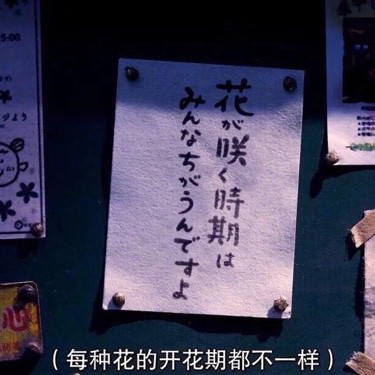 花が咲く時期は
みんなちがうんですよ
5:00
ジよう
心
（每种花的开花期都不一样）